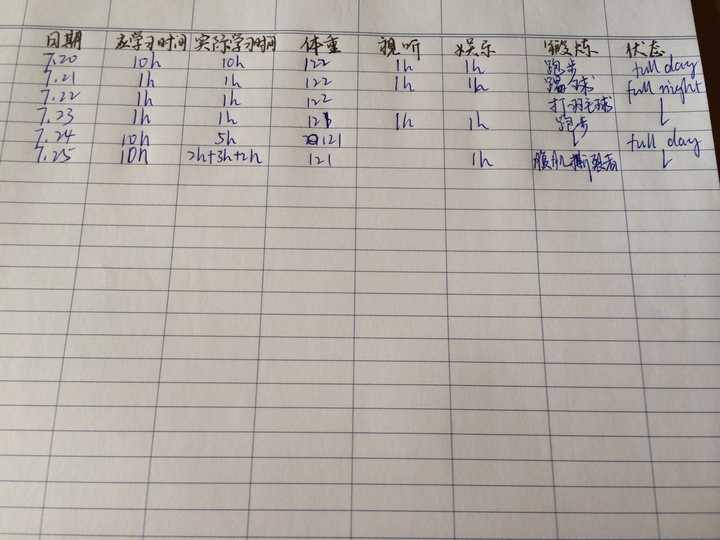 日期 应学习时间 实际学习时间 体重 视听 娱乐 锻炼 状态
7.20 10h 10h 122 1h 1h 跑步 full day
7.21 1h 1h 122 1h 1h 踢球 full night
7.22 1h 1h 122 打羽毛球
7.23 1h 1h 121 1h 1h 跑步
7.24 10h 5h 121 full day
7.25 10h 2h+3h+2h 121 1h 腹肌撕裂者